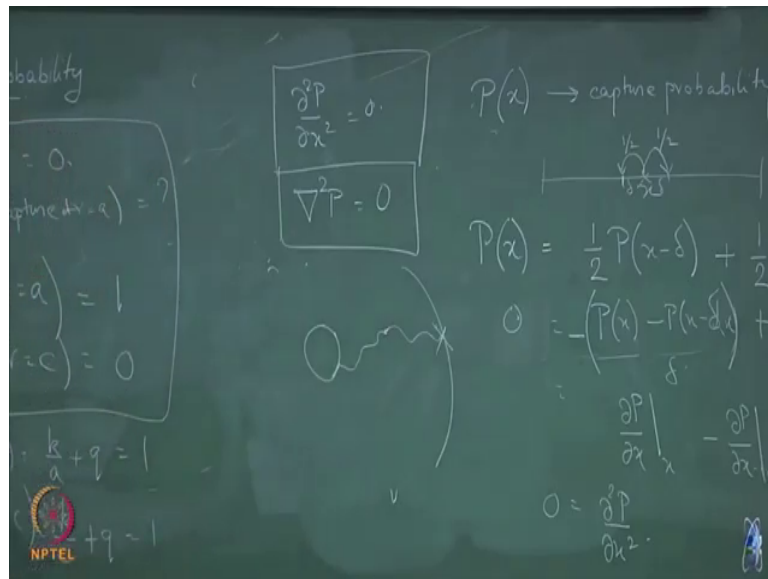 obability
= 0.
apture r = a) = ?
= a) = 1
r = c) = 0
k/a + q = 1
+ q = 1
∂²P/∂x² = 0.
∇²P = 0
P(x) → capture probability
1/2 1/2
P(x) = 1/2 P(x-δ) + 1/2
0 = -(P(x) - P(x-δx)) +
δ
=
∂P/∂x |x - ∂P/∂x |
0 = ∂²P/∂x².
NPTEL